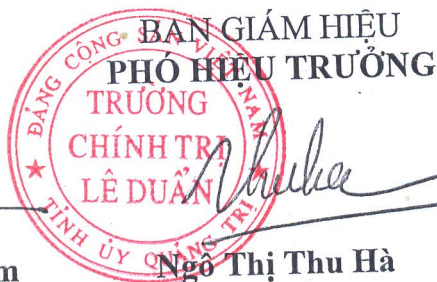 BAN GIÁM HIỆU
PHÓ HIỆU TRƯỞNG
ĐẢNG CỘNG SẢN VIỆT NAM
TRƯỜNG
CHÍNH TRỊ
LÊ DUẨN
TỈNH ỦY QUẢNG TRỊ
Ngô Thị Thu Hà